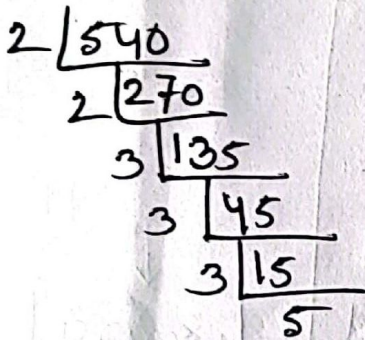 2 540
2 270
3 135
3 45
3 15
5